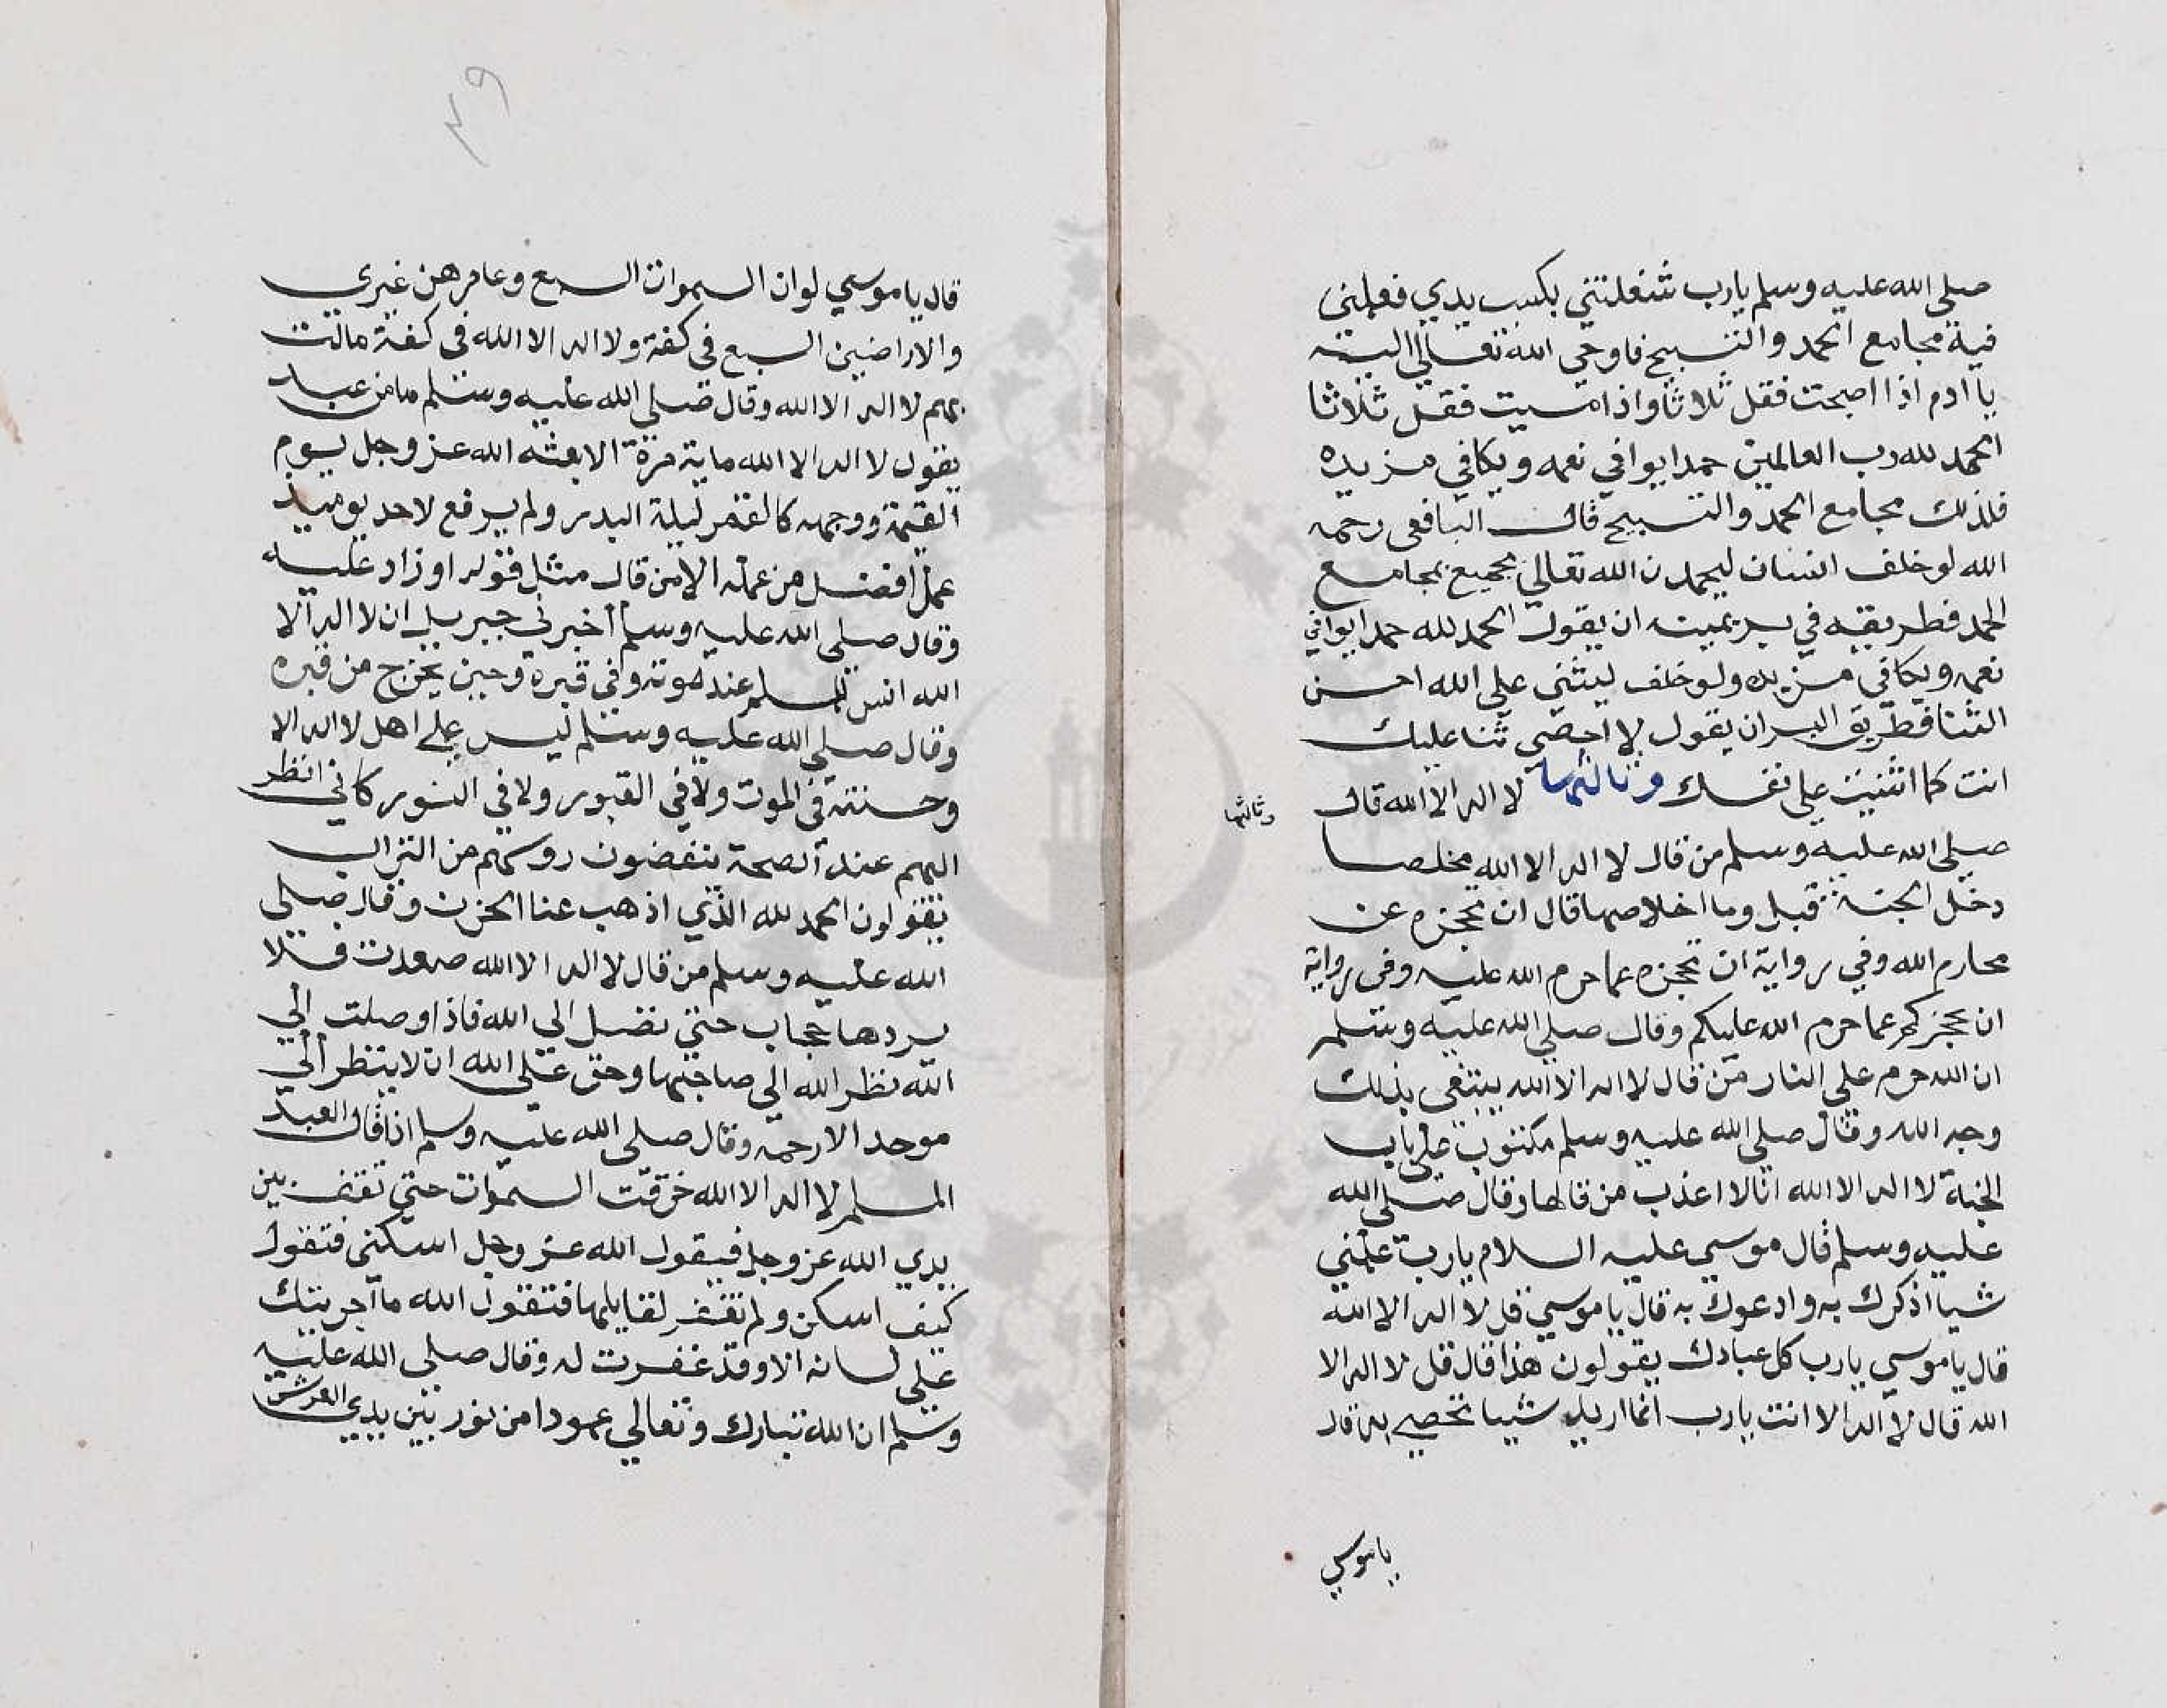 صلى الله عليه وسلم يارب شغلتني بكسب يدي فعلمني
فية مجامع الحمد والتسبيح فاوحي الله تعالي اليه
يا ادم اذا اصبحت فقل ثلاثا واذا امسيت فقل ثلاثا
الحمد لله رب العالمين حمدا يوافي نعمه ويكافي مزيده
فلذلك مجامع الحمد والتسبيح قال الشافعى رحمه
الله لو حلف انسان ليحمدن الله تعالي بجميع مجامع
الحمد فطريقه في بر يمينه ان يقول الحمد لله حمدا يوافي
نعمه ويكافي مزيده ولو حلف ليثني علي الله احسن
الثنا فطريق البر ان يقول لا احصي ثنا عليك
انت كما اثنيت علي نفسك وثالثها لا اله الا الله قال
وثالثها
صلى الله عليه وسلم من قال لا اله الا الله مخلصا
دخل الجنة قيل وما اخلاصها قال ان تحجزه عن
محارم الله وفي رواية ان تحجزه عما حرم الله عليه وفي رواية
ان تحجزكم عما حرم الله عليكم وقال صلي الله عليه وسلم
ان الله حرم علي النار من قال لا اله الا الله يبتغي بذلك
وجه الله وقال صلي الله عليه وسلم مكتوب علي باب
الجنة لا اله الا الله انا لا اعذب من قالها وقال صلي الله
عليه وسلم قال موسي عليه السلام يارب علمني
شيا اذكرك به وادعوك به قال يا موسي قل لا اله الا الله
قال يا موسي يارب كل عبادك يقولون هذا قال قل لا اله الا
الله قال لا اله الا انت يارب انما اريد شييا تخصني به قال
يا موسي
٣٩
قال يا موسي لو ان السموات السبع وعامرهن غيري
والاراضين السبع في كفة ولا اله الا الله في كفة مالت
بهم لا اله الا الله وقال صلي الله عليه وسلم ما من عبد
يقول لا اله الا الله ماية مرة الا بعثه الله عز وجل يوم
القيمة ووجهه كالقمر ليلة البدر ولم يرفع لاحد يوميذ
عمل افضل من عمله الا من قال مثل قوله او زاد عليه
وقال صلي الله عليه وسلم أخبرني جبريل ان لا اله الا
الله انس للمسلم عند موته وفي قبره وحين يخرج من قبره
وقال صلي الله عليه وسلم ليس علي اهل لا اله الا
وحسنته في الموت ولا في القبور ولا في النشور كاني انظر
اليهم عند الصيحة ينفضون روسهم من التراب
يقولون الحمد لله الذي اذهب عنا الحزن وقال صلي
الله عليه وسلم من قال لا اله الا الله صعدت فلا
يردها حجاب حتي تصل الي الله فاذا وصلت الي
الله نظر الله الي صاحبها وحق علي الله ان لا ينظر الي
موحد الا رحمه وقال صلي الله عليه وسلم اذا قال العبد
المسلم لا اله الا الله خرقت السموات حتي تقف بين
يدي الله عز وجل فيقول الله عز وجل اسكني فتقول
كيف اسكن ولم تغفر لقايلها فتقول الله ما اجريتك
علي لسانه الا وقد غفرت له وقال صلي الله عليه
وسلم ان الله تبارك وتعالي عمودا من نور بين يدي العرش